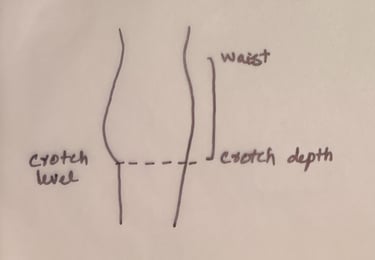 waist
crotch
level
crotch depth